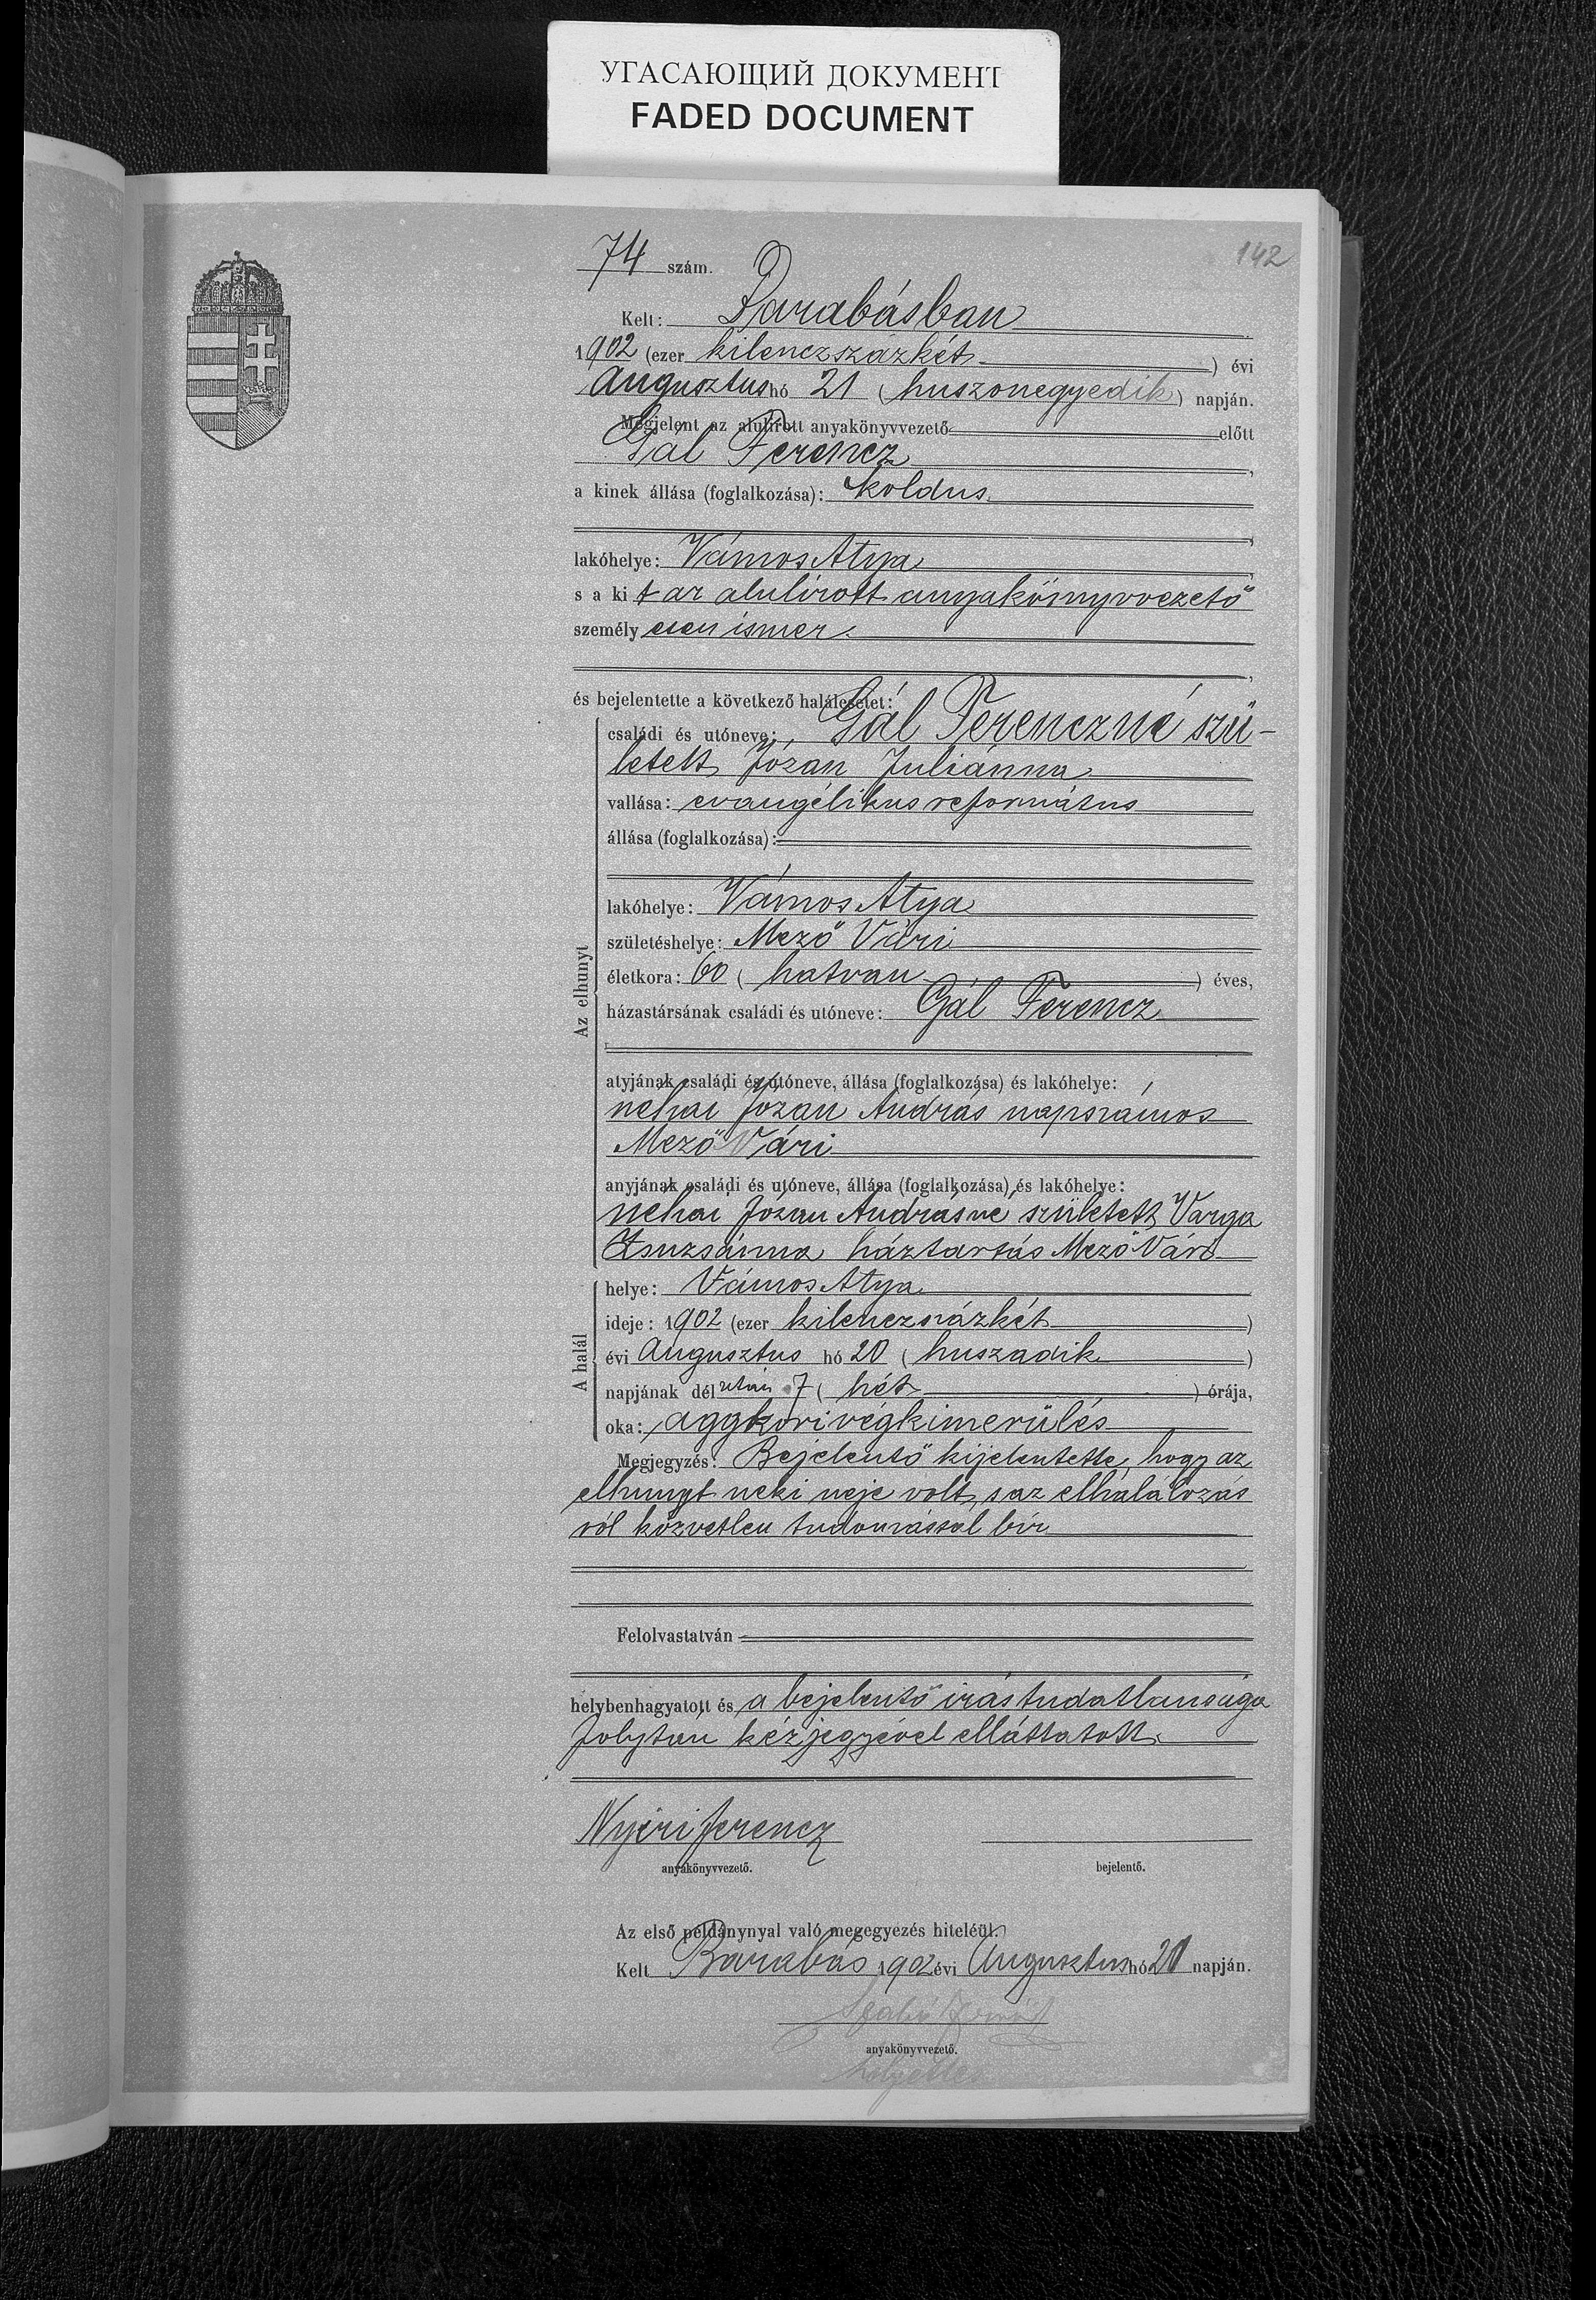 УГАСАЮЩИЙ ДОКУМЕНТ
FADED DOCUMENT
142
74 szám.
Kelt: Barabásban
1902 (ezer kilenczszázkét) évi
Augusztus hó 21 (huszonegyedik) napján.
Megjelent az alulirott anyakönyvvezető előtt
Gál Ferencz,
a kinek állása (foglalkozása): koldus
lakóhelye: Vámos Atya,
s a kit az alulirott anyakönyvvezető
személyesen ismer.
és bejelentette a következő halálesetet:
családi és utóneve: Gál Ferenczné szü-
letett Józan Juliánna
vallása: evangélikus református
állása (foglalkozása):
lakóhelye: Vámos Atya
születéshelye: Mező Vári
életkora: 60 (hatvan) éves,
Az elhunyt
házastársának családi és utóneve: Gál Ferencz
atyjának családi és utóneve, állása (foglalkozása) és lakóhelye:
néhai Józan András napszámos
Mező Vári
anyjának családi és utóneve, állása (foglalkozása) és lakóhelye:
néhai Józan Andrásné született Varga
Zsuzsánna háztartás Mező Vári
helye: Vámos Atya
ideje: 1902 (ezer kilenczszázkét)
A halál
évi Augusztus hó 20 (huszadik)
napjának délután 7 (hét) órája,
oka: aggkori végkimerülés
Megjegyzés: Bejelentő kijelentette, hogy az
elhunyt neki neje volt, s az elhalálozás
ról közvetlen tudomással bir
Felolvastatván
helybenhagyatott és a bejelentő irástudatlansága
folytán kézjegyével elláttatott.
Nyiri Ferencz
anyakönyvvezető. bejelentő.
Az első példánynyal való megegyezés hiteléül.
Kelt Barabás 1902 évi Augusztus hó 21 napján.
anyakönyvvezető.
helyettes